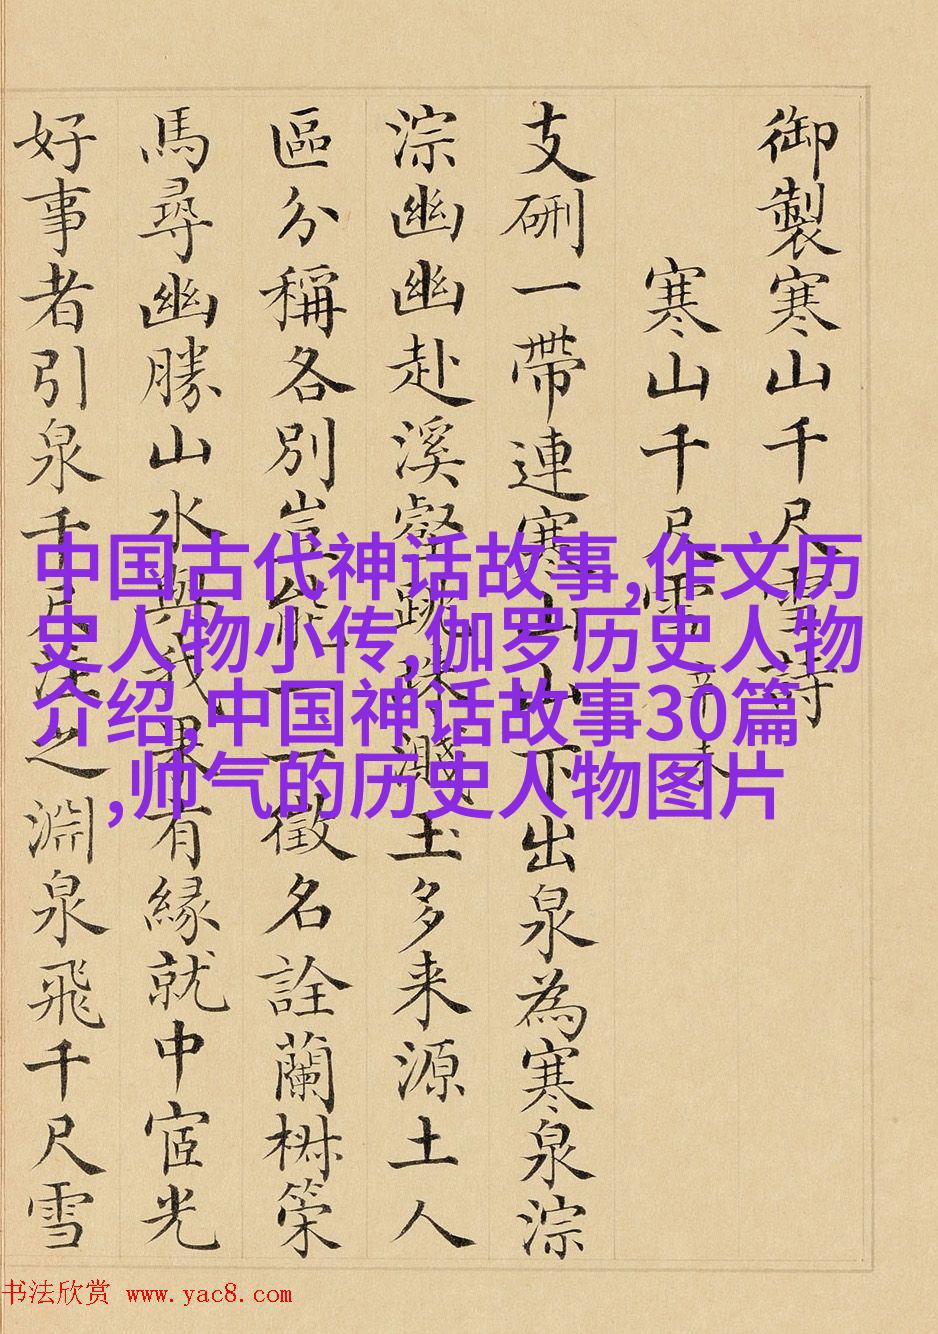 御製寒山千尺雪詩
寒山千尺雪辛未
支硎一帶連寒山山下出泉為寒泉淙
淙幽幽赴溪壑跳珠濺玉多来源土人
區分稱各別豈能一一徵名詮蘭策
馬尋幽勝山水與我果有緣就中宧光
好事者引泉千尺注之淵泉飛千尺雪
中国古代神话故事,作文历
史人物小传,伽罗历史人物
介绍,中国神话故事30篇
,帅气的历史人物图片
书法欣赏 www.yac8.com